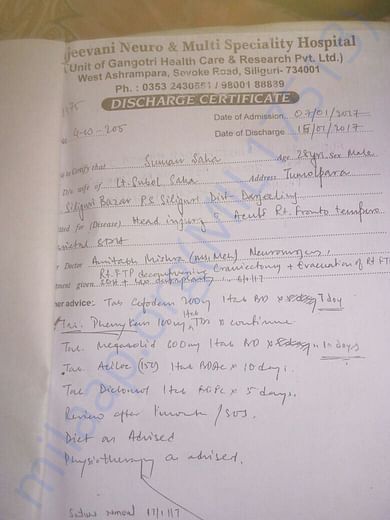 jeevani Neuro & Multi Speciality Hospital
Unit of Gangotri Health Care & Research Pvt. Ltd.)
West Ashrampara, Sevoke Road, Siliguri- 734001
Ph. : 0353 2430551 / 98001 88839
DISCHARGE CERTIFICATE
Date of Admission 07/01/2017
Date of Discharge 15/01/2017
to Certify that Suman Saha Age 28yrs. Sex Male
D/o wife of Lt. Subol Saha Address Tumolpara
Siliguri Bazar P.S Siliguri Dist- Darjeeling
ated for (Disease) Head injury Acute Rt. Fronto temporo
parietal SDH
Doctor Amitabh Mishra (MS, Mch) Neurosurgeon
Rt. FTP decompressive Craniectomy + Evacuation of Rt FTP
ment given SDH + lax duraplasty
her advice: Tab Cefodem 200mg 1tab BD x 7day
Tab. 100mg 1tab TDS x continue
Tab. Megasolid 600mg 1tab BD x 10 days
Tab. Aciloc (150) 1tab x 10 days.
Tab 1tab x 5 days.
Review after 1 month / SOS.
Diet as Advised
Physiotherapy as advised.
Suture removal 17/1/17
milaap.org